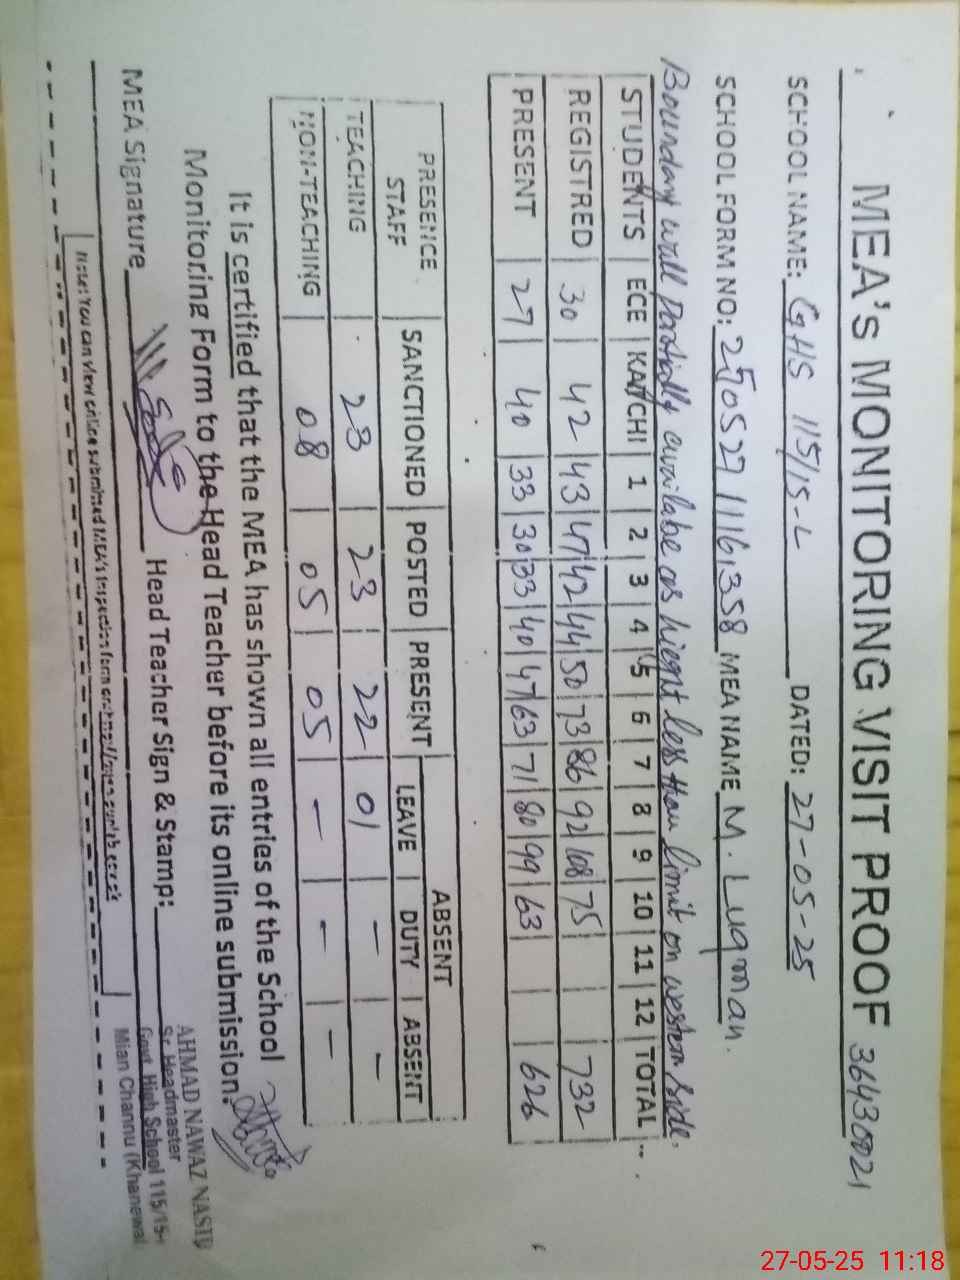 MEA's MONITORING VISIT PROOF 36430021
SCHOOL NAME: GHS 115/15-L DATED: 27-05-25
SCHOOL FORM NO: 25052711161358 MEA NAME M. Luqman.
Boundary wall Partially availabe as hieght less than limit on western side.
STUDENTS ECE KATCHI 1 2 3 4 5 6 7 8 9 10 11 12 TOTAL
REGISTRED 30 42 43 47 42 44 50 73 86 92 108 75 732
PRESENT 27 40 33 30 33 40 47 63 71 80 99 63 626
PRESENCE STAFF SANCTIONED POSTED PRESENT ABSENT
LEAVE DUTY ABSENT
TEACHING 23 23 22 01 - -
NON-TEACHING 08 05 05 - - -
It is certified that the MEA has shown all entries of the School
Monitoring Form to the Head Teacher before its online submission.
MEA Signature Head Teacher Sign & Stamp:
AHMAD NAWAZ
Sr. Headmaster
Govt. High School 115/15-
Mian Channu (Khanewal
Note: You can view online submitted MEA's inspection form on
27-05-25 11:18